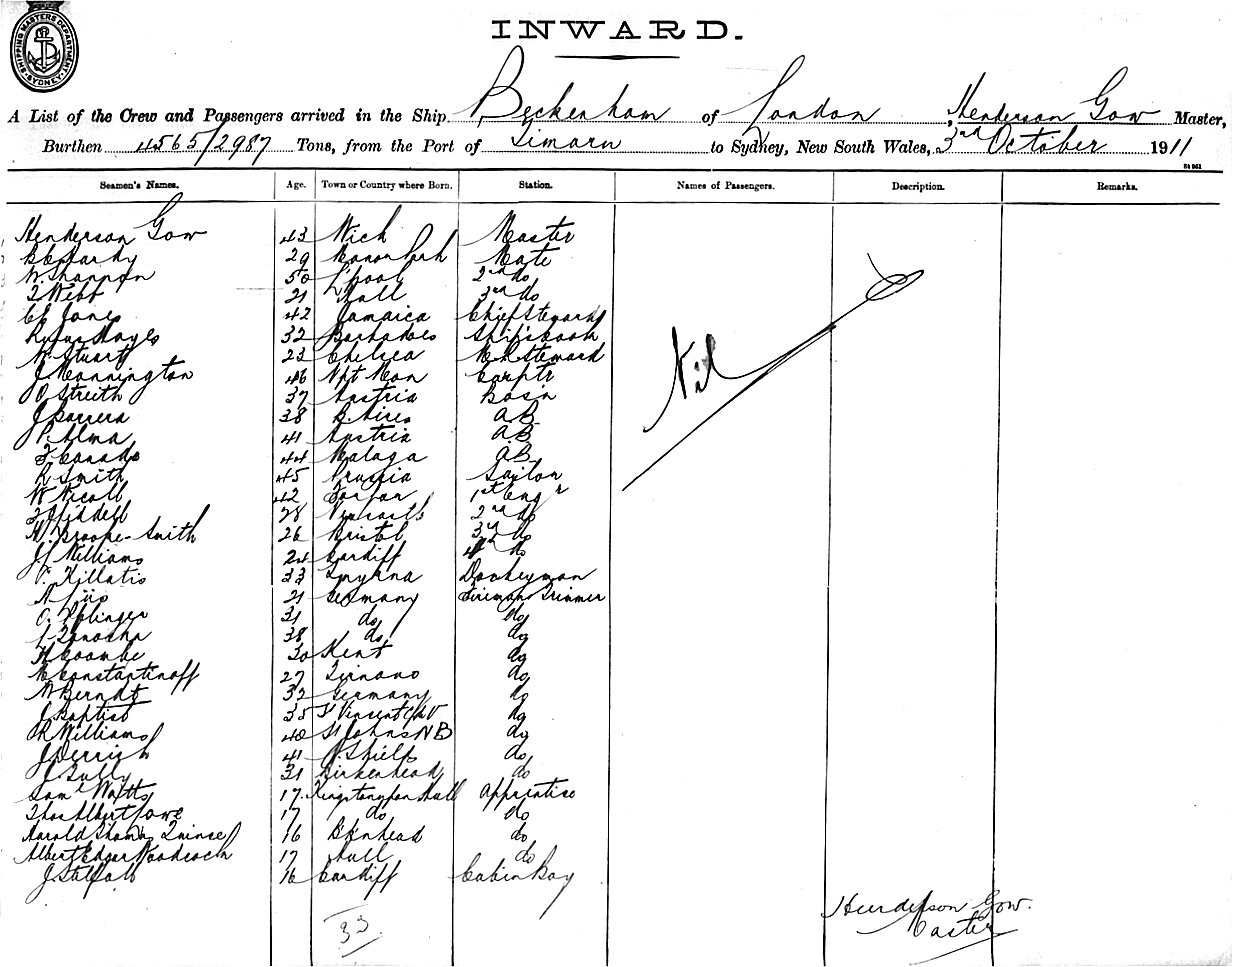 SHIPPING MASTERS DEPARTMENT SYDNEY
INWARD.
A List of the Crew and Passengers arrived in the Ship Beckenham of London, Henderson Gow Master,
Burthen 4565/2987 Tons, from the Port of Timaru to Sydney, New South Wales, 3rd October 1911
Seamen's Names. Age. Town or Country where Born. Station. Names of Passengers. Description. Remarks.
Henderson Gow 43 Wick Master
29 Mate
W. Shannon 50 L'pool 2nd do
F Webb 21 Hull 3rd do
C E Jones 42 Jamaica Chief Steward
Rufus Hayes 32 Barbadoes Ship's cook
W. Stuart 23 Chelsea M R Steward
J Mannington 46 Npt Mon Carptr
O Streith 37 Austria Bos'n
J Barrera 38 B. Aires A.B.
P. Alma 41 Austria A.B.
F Canado 44 Malaga A.B.
R Smith 45 Prussia Sailor
W Nicoll 42 Forfar 1st Engr
28 2nd do
H. Brooke-Smith 26 Bristol 3rd do
J J Williams 24 Cardiff 4th do
33 Smyrna Donkeyman
21 Germany Fireman & Trimmer
31 do do
38 do do
H Coombe 30 Kent do
M Constantinoff 27 do
W Berndt 32 Germany do
J Baptist 35 St Vincent C de V do
R Williams 40 St Johns NB do
J Derrick 41 N. Shields do
J. Gully 31 Birkenhead do
Saml Watts 17 Kingston upon Hull Apprentice
Thos Albert Lowe 17 do do
Harold Thomas 16 B'kenhead do
Albert Edgar Woodcock 17 Hull do
16 Cardiff Cabin Boy
Nil
33
Henderson Gow
Master